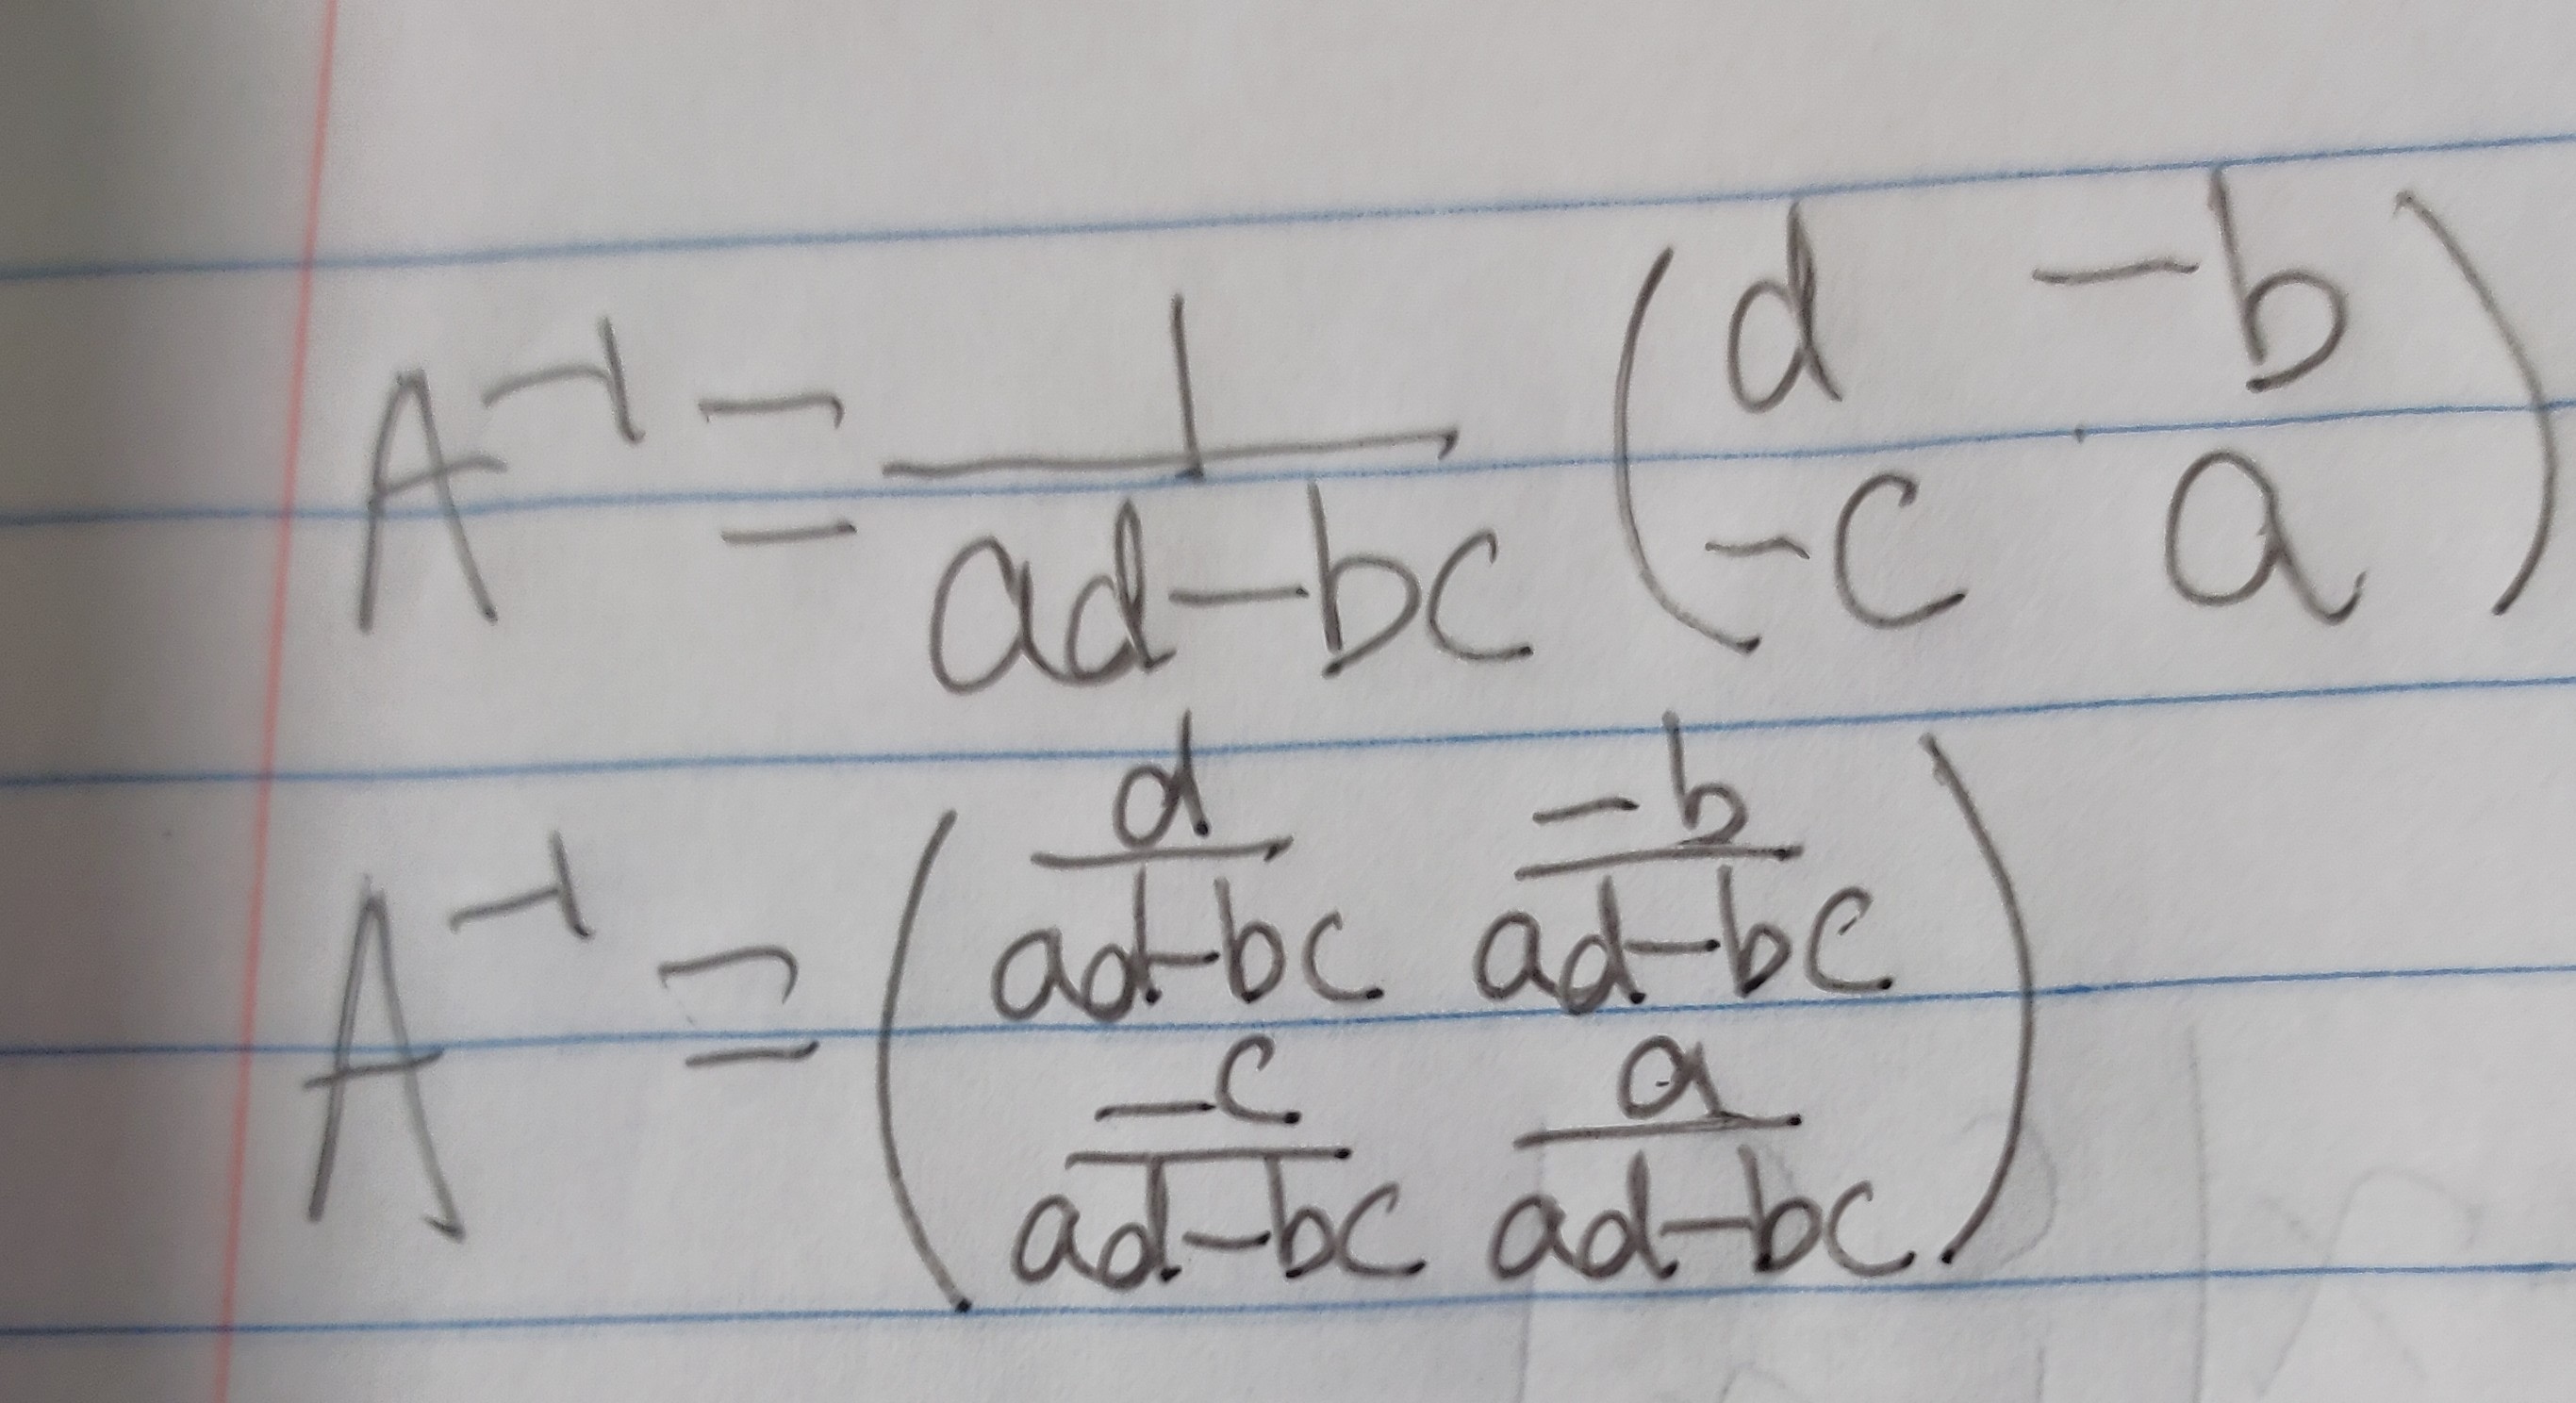 A^{-1} = \frac{1}{ad-bc} \begin{pmatrix} d & -b \\ -c & a \end{pmatrix}
A^{-1} = \begin{pmatrix} \frac{d}{ad-bc} & \frac{-b}{ad-bc} \\ \frac{-c}{ad-bc} & \frac{a}{ad-bc} \end{pmatrix}